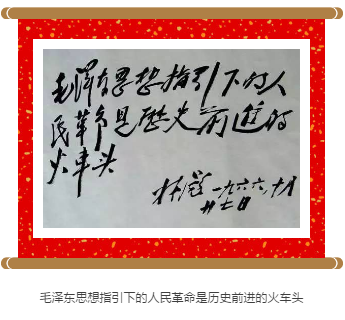 毛泽东思想指引下的人
民革命是歷史前進的
火车头
林彪 一九六六,十月
廿七日
毛泽东思想指引下的人民革命是历史前进的火车头